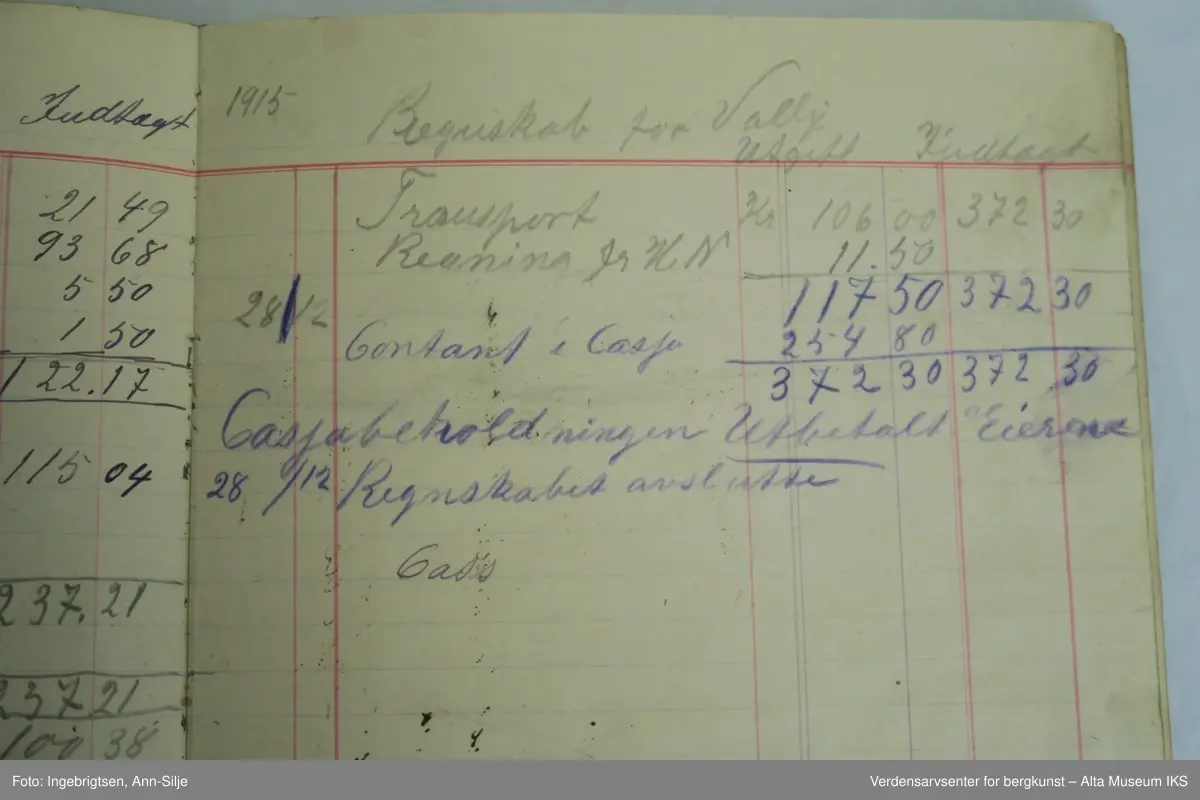 Indtagt
21 49
93 68
5 50
1 50
122.17
115 04
237.21
237 21
100 38
1915 Regnskab for Vally
Utgift Indtagt
Transport Kr 106 00 372 30
Regning fr H N 11.50
28/12 117 50 372 30
Contant i Casja 254 80
372 30 372 30
Casjabeholdningen Utbetalt Eierene
28/12 Regnskabet avslutte
Cass
Foto: Ingebrigtsen, Ann-Silje
Verdensarvsenter for bergkunst – Alta Museum IKS